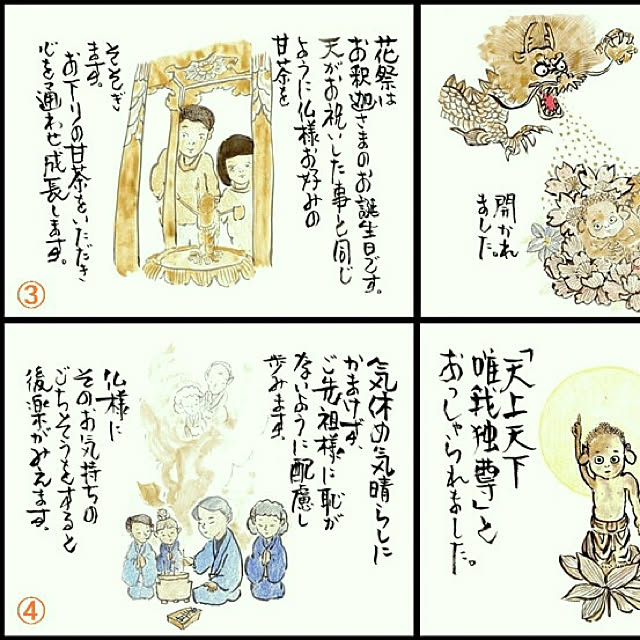 開かれ
ました。
「天上天下
唯我独尊」と
おっしゃられました。
花祭は
お釈迦さまのお誕生日です。
天がお祝いした事と同じ
ように仏様お好みの
甘茶を
そそぎ
ます。
お下りの甘茶をいただき
心を通わせ成長します。
③
気休め気晴らしに
かまけず、
ご先祖様に恥が
ないように配慮し
歩みます。
仏様に
そのお気持ちの
ごちそうをすると
後楽がみえます。
④